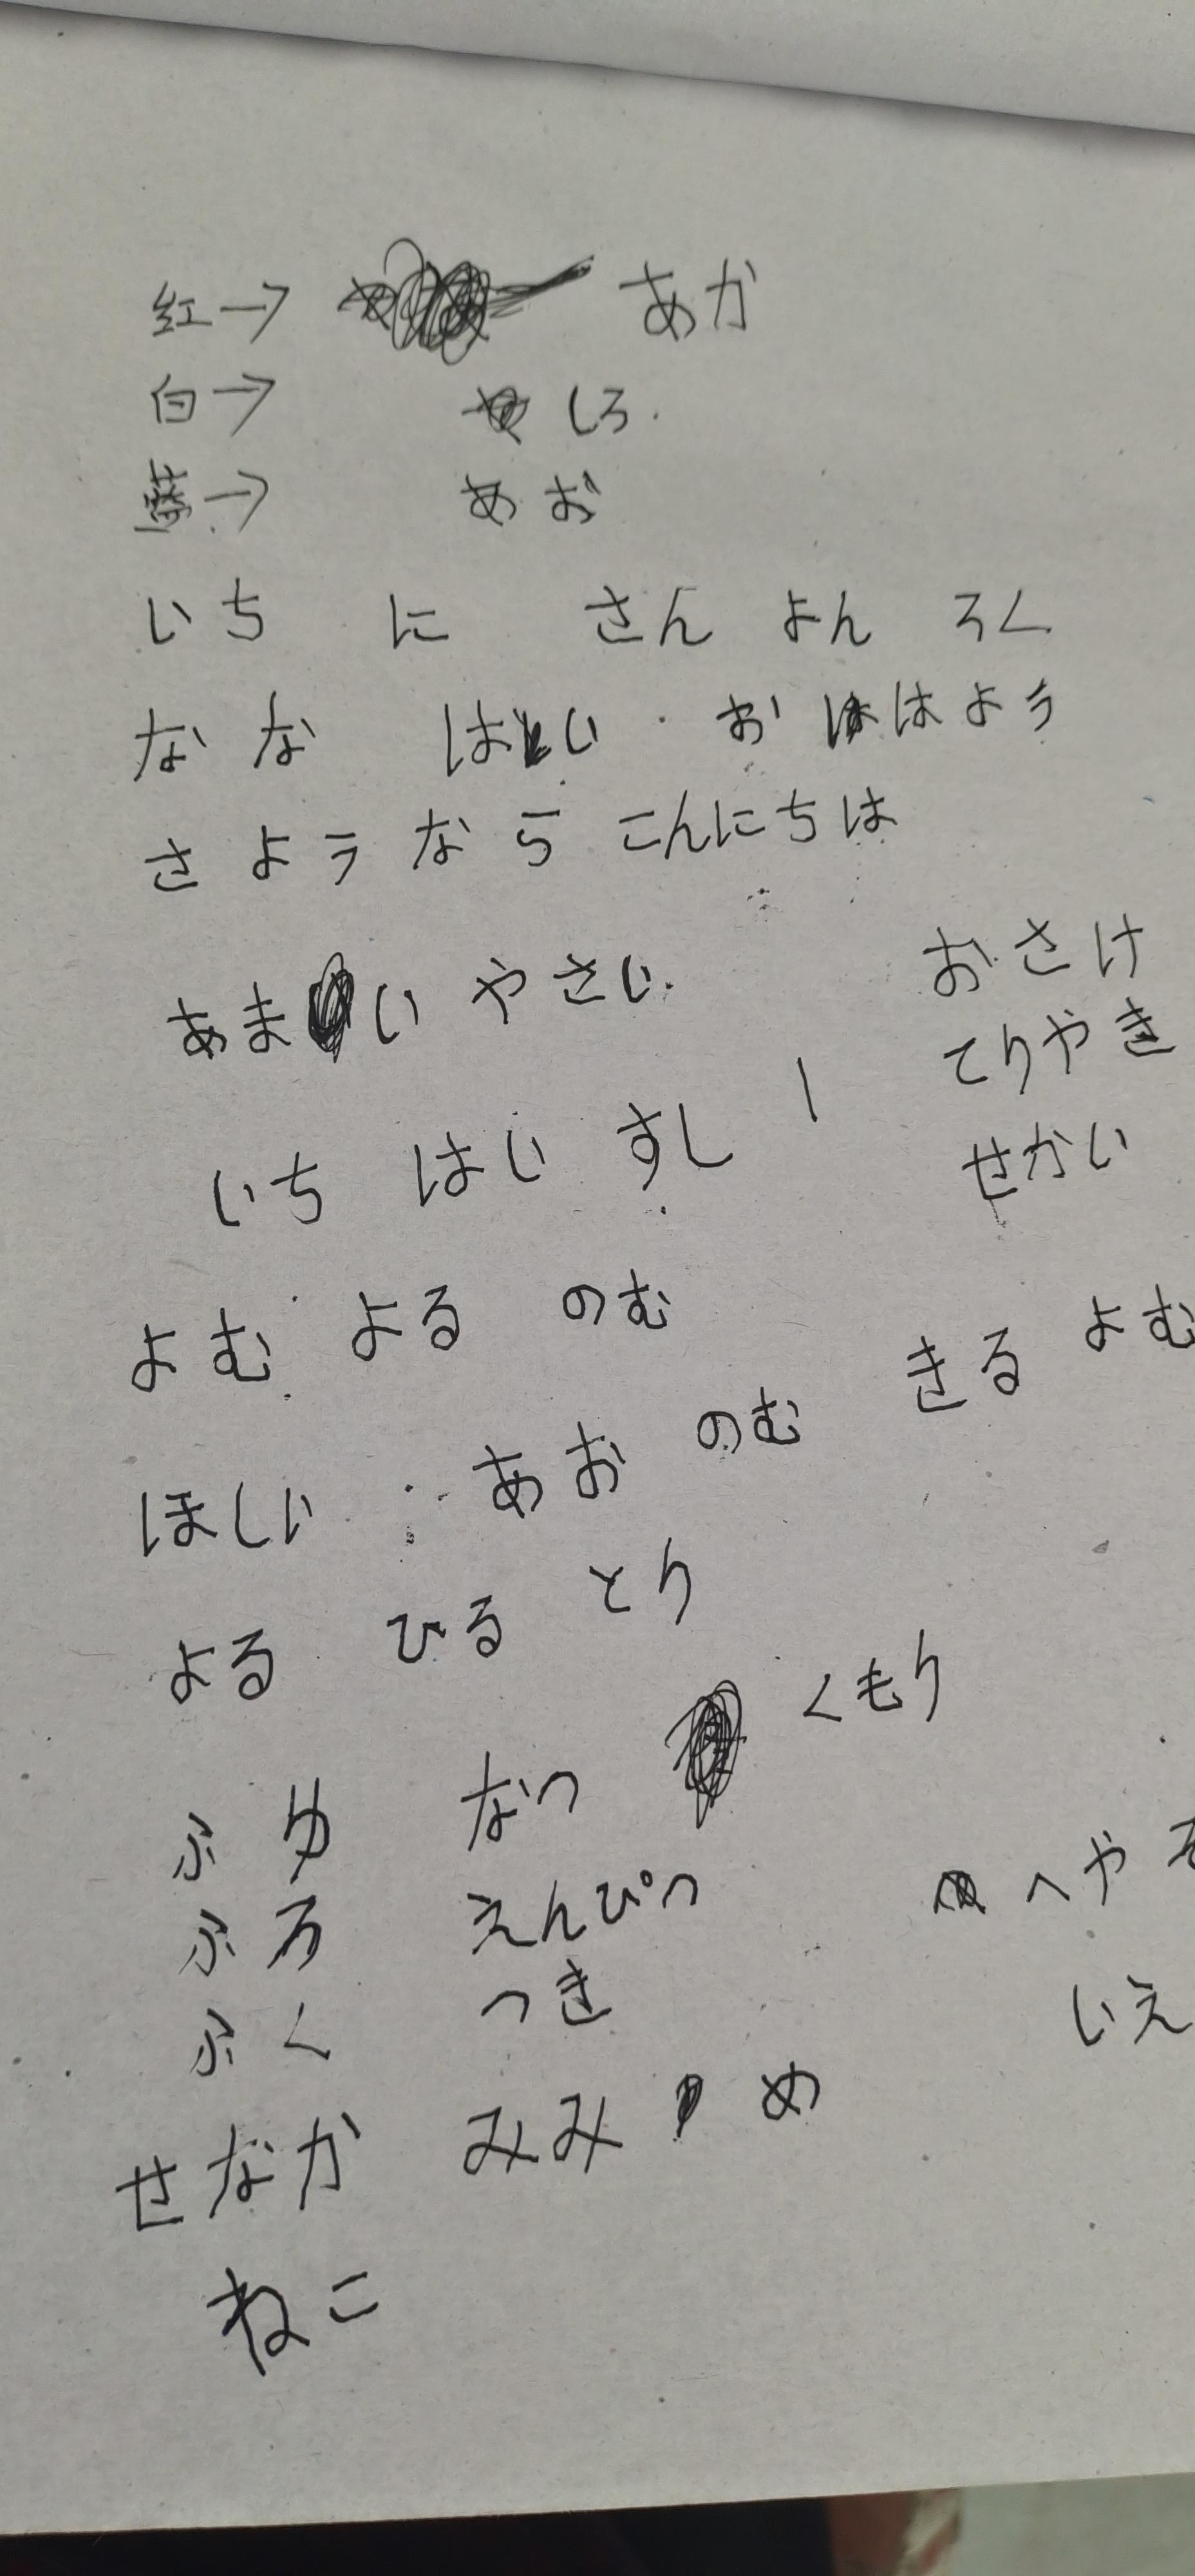 红→ あか
白→ しろ
→ あお
いち に さん よん ろく
なな はい おはよう
さようなら こんにちは
あまい やさい おさけ
てりやき
いち はい すし せかい
よむ よる のむ きる よむ
ほしい あお のむ
よる ひる とり
くもり
ふゆ なつ
ふろ えんぴつ へや
ふく つき いえ
せなか みみ め
ねこ